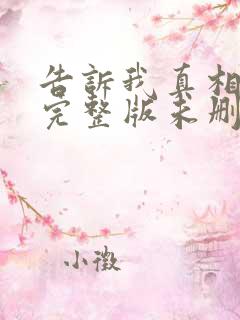 告訴我真相
完整版未刪
小微